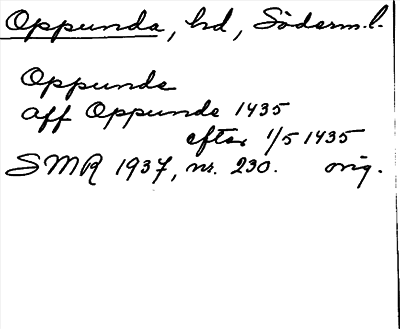 Oppunda, hd, Söderm.l.
Oppunde
aff Oppunde 1435
efter 1/5 1435
SMR 1937, nr. 230. orig.